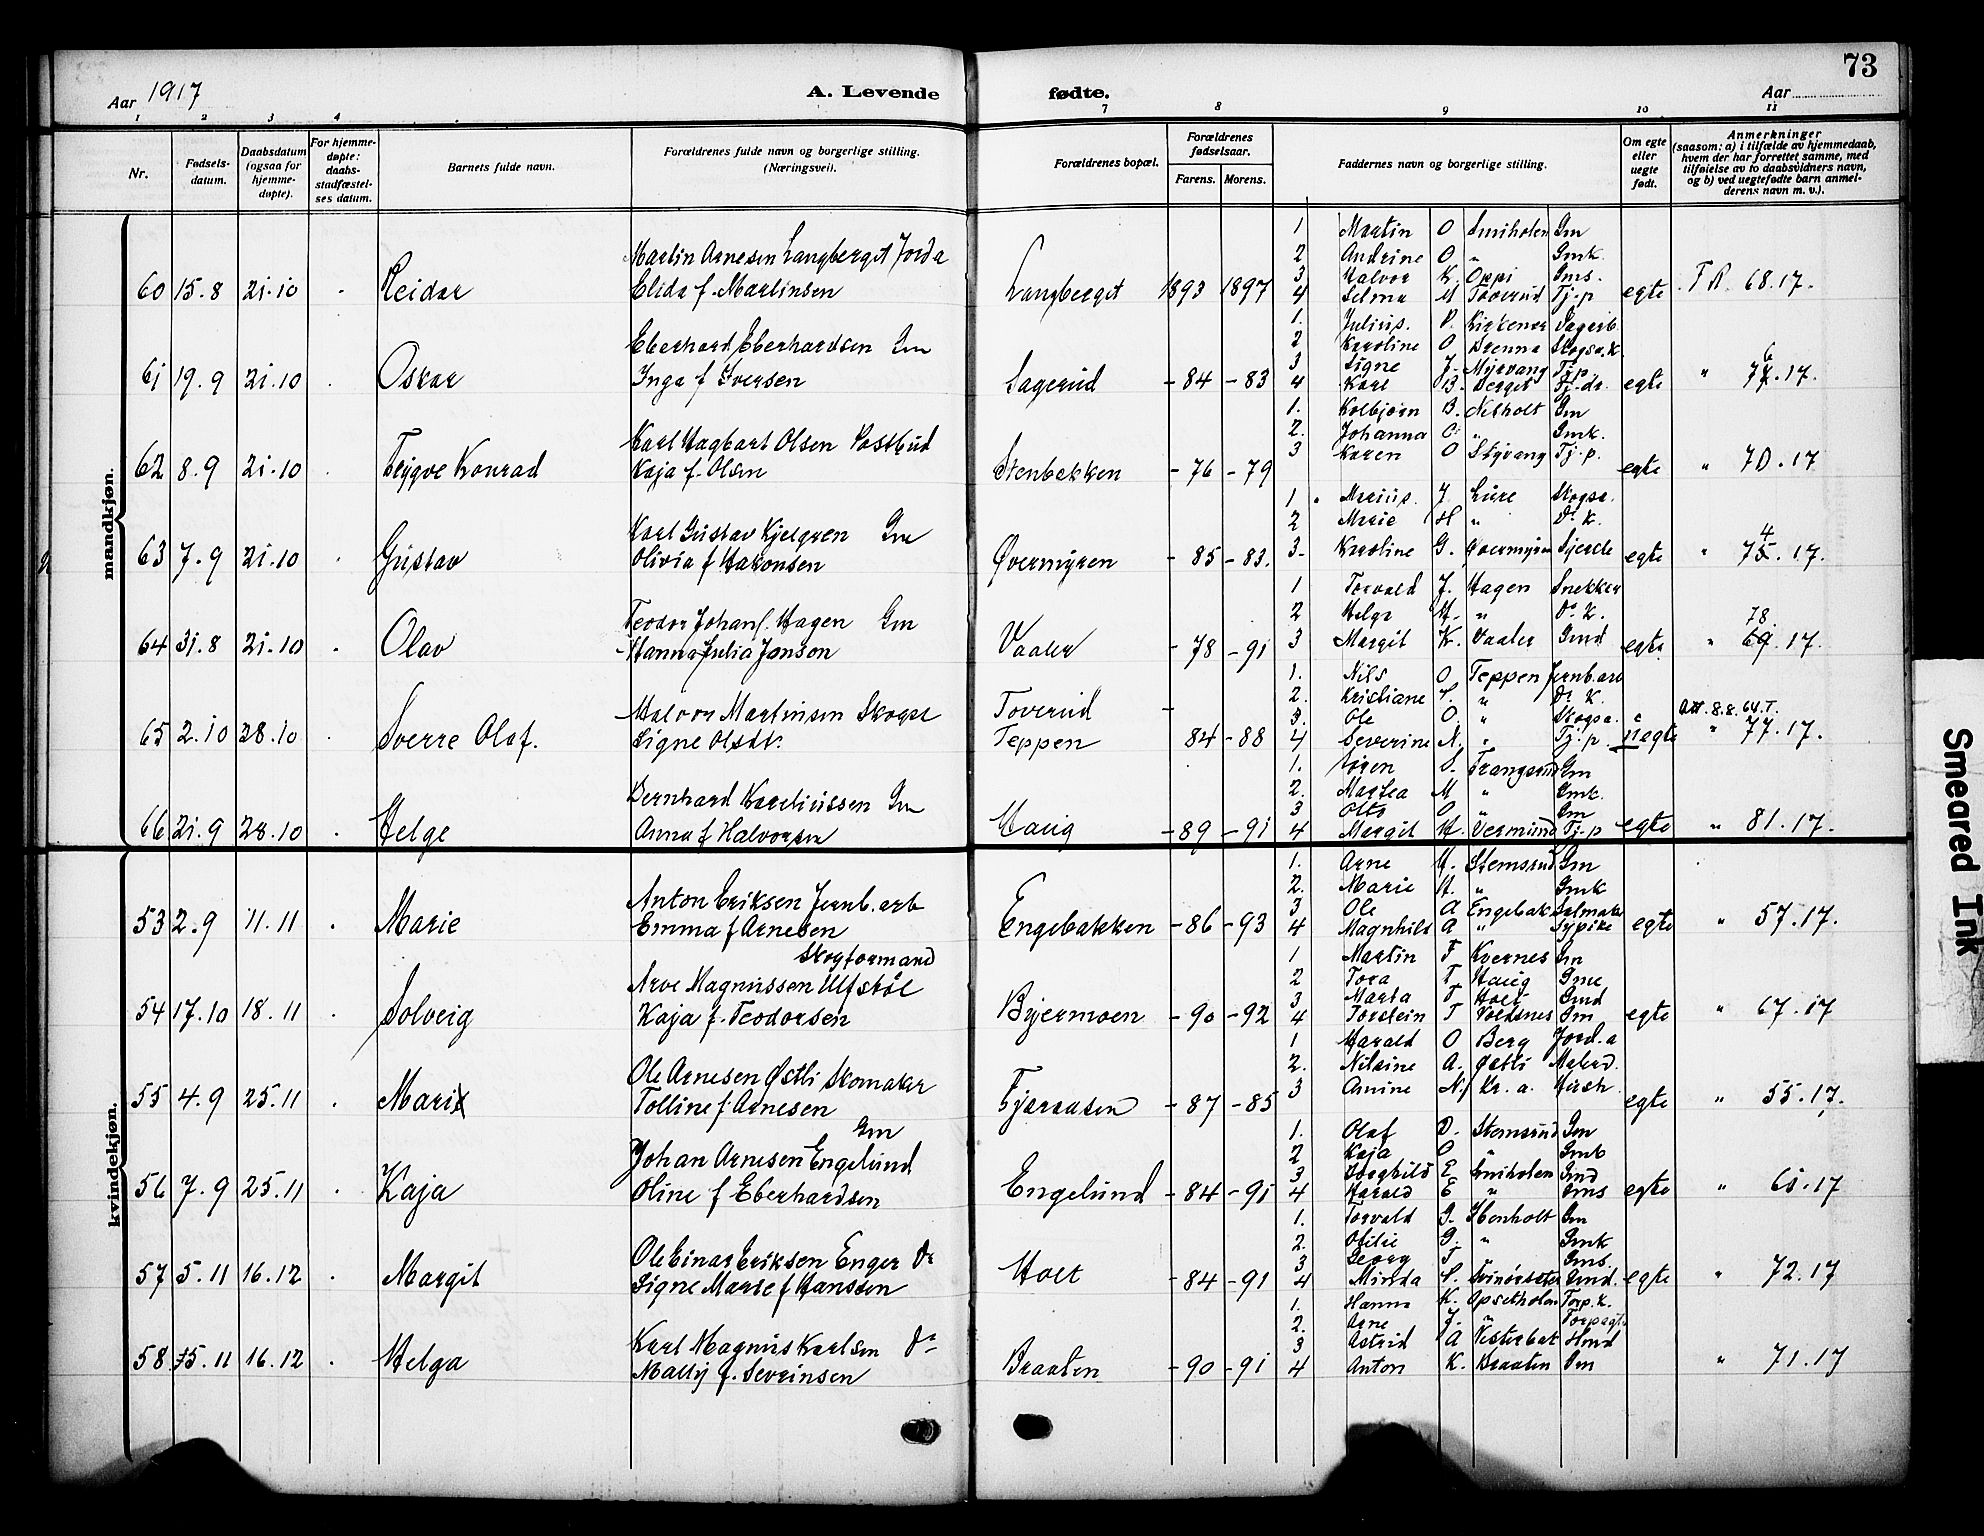 73
Aar 1917
A. Levende
fødte.
Aar
1 2 3 4 7 8 9 10 11
Nr.
Fødsels-
datum.
Daabsdatum
(ogsaa for
hjemme-
døpte).
For hjemme-
døpte:
daabs-
stadfæstel-
ses datum.
Barnets fulde navn.
Forældrenes fulde navn og borgerlige stilling.
(Næringsvei).
Forældrenes bopæl.
Forældrenes
fødselsaar.
Farens. Morens.
Faddernes navn og borgerlige stilling.
Om egte
eller
uegte
født.
Anmerkninger
(saasom: a) i tilfælde av hjemmedaab,
hvem der har forrettet samme, med
tilføielse av to daabsvidners navn,
og b) ved uegtefødte barn anmel-
derens navn m. v.).
mandkjøn.
1 Martin O Smiholen Gm
Martin Arnesen Langberget Jorda
2 Andrine O " Gmk.
3 Halvor K. Oppi Gms.
60 15.8 21.10 Reidar Elida f. Martinsen Langberget 1893 1897 4 Selma M Toverud Tj-p egte T.R. 68.17.
1. Julius. Kirkener Sagarb.
Eberhard Eberhardsen Gm
2 Karoline O Brenna Skogsa.K
3 Signe J. Myrvang Tj.p.
61 19.9 21.10 Oskar Inga f Iversen Sagerud -84 -83 4 Karl B. Berget Tj-dr. egte " 76.17.
1. Kolbjørn B. Nilholt Gm
Karl Hagbart Olsen Postbud
2. Johanna O " Gmk.
3 Karen O Skyvang Tj-p.
62 8.9 21.10 Trygve Konrad Kaja f. Olsen Stenbakken -76 -79 egte " 70.17
1 Marius. J. Lure Skogsa.
Karl Gustav Kjelgren Gm
2 Marie H " Do K.
63 7.9 21.10 Gustav Olivia f Hakonsen Øvermyren -85 -83. 3. Karoline G. Øvermyren Gjerde egte " 74.17.
1 Torvald J. Hagen Snekker
Teodor Johan f. Hagen Gm
2 Helga H. " Do K.
64 31.8 21.10 Olav Hanna Julia Janson Vaaler -78 -91 3 Margit K. Vaaler Gmd egte " 78.17.
1. Nils O Teppen Jernb.arb
2. Kristiane S. " Do K.
Halvor Martinsen Skogsa Toverud
3. Ole O. " Skogsa. Att. 8.8.64.T.
65 2.10 28.10 Sverre Olaf. Signe Olsdtr. Teppen 84 -88 4 Severine N. " Tj-p. uegte " 77.17.
1. Søren S. Trangsrud Gm
2. Martea M " Gmk.
Bernhard Kareliussen Gm
3 Otto O. " Gm
66 21.9 28.10 Helge Anna f Halvorsen Haug -89 -91 4 Margit H. Vermund Tj-p egte " 81.17.
kvindekjøn.
1. Arne H. Stemsrud Gm
2. Marie H. " Gmk
Anton Eriksen Jernb.arb
3 Ole A Engebak. Salmaker
53 2.9 11.11 Marie Emma f Arnesen Engebakken -86 -93 4 Magnhild A " Sypike egte " 57.17.
Skogformand
1 Martin F Kvernes Gm
Arve Magnussen Ulfsbøl
2 Tora T Haug Gme
3 Marta T Holt Gmd
54 17.10 18.11 Solveig Kaja f. Teodorsen Bjermoen -90 -92 4 Torstein T Voldsnes Gm egte " 67.17
1 Harald O Berg Jord.a
Ole Arnesen Østli Skomaker
2. Nilsine A. Østli Malerd.
55 4.9 25.11 Mari Tolline f. Arnesen Fjeraasen -87 -85 3 Amine N Kr.a. Hush. egte " 55.17.
Gm
1. Olaf O. Stemsrud Gm
Johan Arnesen Engelund
2 Kaja O " Gmk
3 Borghild E Smiholen Gmd
56 7.9 25.11 Kaja Oline f Eberhardsen Engelund -84 -91 4 Harald E " Gms egte " 61.17
1. Torvald G. Ibenholt Gm
Ole Einar Eriksen Enger Do
2. Otilie G. " Gmk
3 Georg T " Gms.
57 5.11 16.12 Margit Signe Marie f Hanssen Holt -84 -91 4 Minda S. Gmd. egte " 72.17
1. Hanna K. Opsetholen Torp.K.
Karl Magnus Karlsen Do
2. Arne J. " Torpagt.
3 Astrid A Vesterbak Hmd
58 15.11 16.12 Helga Mally f. Sevrinsen Braaten -90 -91 4 Anton K. Braaten Gm " 71.17
Smeared Ink